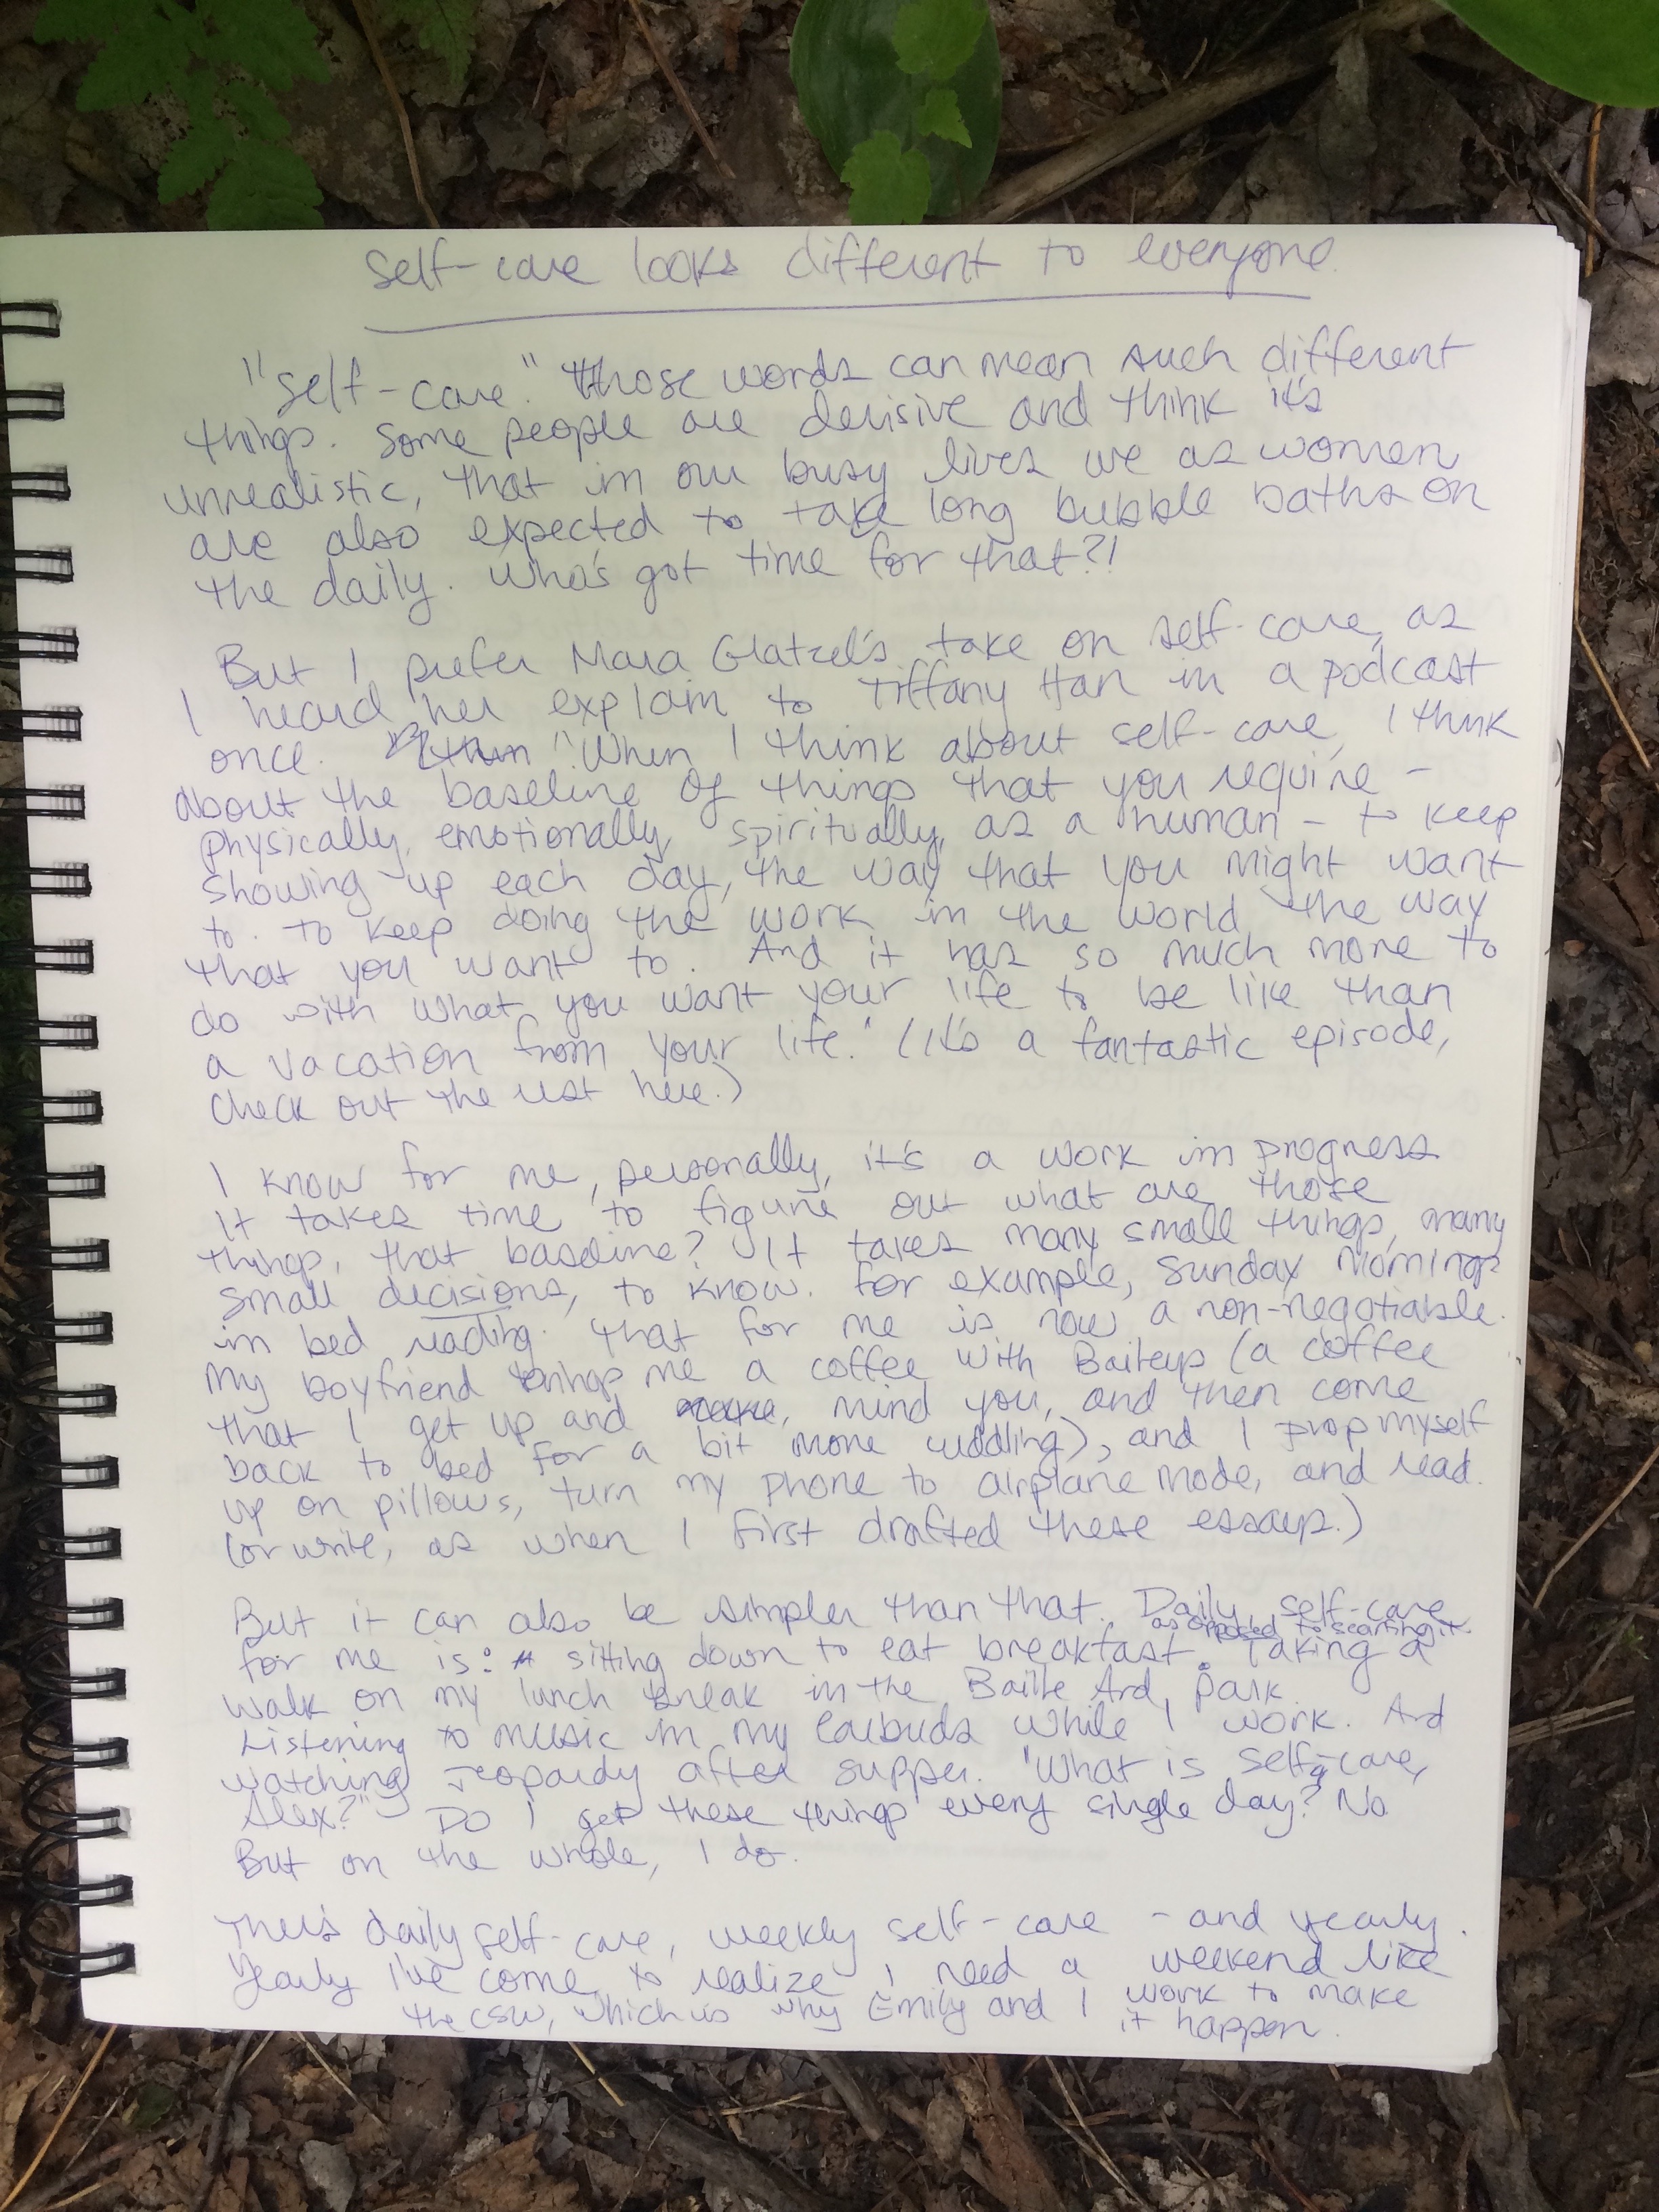 self-care looks different to everyone.
"Self-care." Those words can mean such different
things. Some people are derisive and think it's
unrealistic, that in our busy lives we as women
are also expected to take long bubble baths on
the daily. Who's got time for that?!
But I prefer Mara Glatzel's take on self-care, as
I heard her explain to Tiffany Han in a podcast
once. "When I think about self-care, I think
about the baseline of things that you require -
physically, emotionally, spiritually, as a human - to keep
showing up each day, the way that you might want
to. To keep doing the work in the world the way
that you want to. And it has so much more to
do with what you want your life to be like than
a vacation from your life." (It's a fantastic episode,
check out the rest here.)
I know for me, personally, it's a work in progress
It takes time to figure out what are those
things, that baseline? It takes many small things, many
small decisions, to know. For example, Sunday mornings
in bed reading. That for me is now a non-negotiable.
My boyfriend brings me a coffee with Baileys (a coffee
that I get up and make, mind you, and then come
back to bed for a bit more cuddling), and I prop myself
up on pillows, turn my phone to airplane mode, and read.
(or write, as when I first drafted these essays.)
But it can also be simpler than that. Daily self-care
as opposed to scarfing it.
for me is: sitting down to eat breakfast. Taking a
walk on my lunch break in the Baille Ard park.
Listening to music in my earbuds while I work. And
watching Jeopardy after supper. "What is self-care,
Alex?" Do I get these things every single day? No.
But on the whole, I do.
There's daily self-care, weekly self-care - and yearly.
Yearly I've come to realize I need a weekend like
the CSW, which is why Emily and I work to make
it happen.